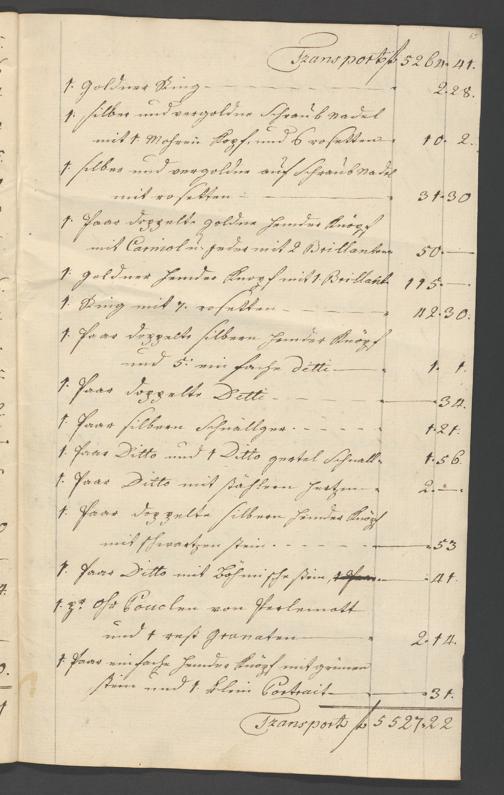 Transport f 5264. 41.
1. goldner Ring - " 2. 28.
1. silber und vergoldne Schraub nadel
mit 1 Mohren Kopf, und 6 rosetten " 10. 2.
1. silber und vergoldne auf Schraub Nadel
mit rosetten - " 31. 30
1. Paar doppelte goldne Hemder Knöpf
mit Carniol u: jeder mit 2 Brillanten 50. -
1. goldner Hemder Knopf mit 1 Brillant 115. -
1. Ring mit 7. rosetten - " 42. 30.
1. Paar doppelte silbern Hemder Knöpf
und 5: einfache detti - " 1. 1.
1. Paar doppelte Detti - " 34.
1. Paar silbern Schnallger - " 1. 21.
1. Paar Ditto und 1 Ditto gertel Schnall " 1. 56.
1. Paar Ditto mit stahlern Hertzen " 2. -
1. Paar doppelte silbern Hemder Knöpf
mit schwartzen stein - " 53
1. Paar Ditto mit Böhmische stein " 41.
1. pr Ohr Bouclen von Perlemott
und 1 rest Granaten - " 2. 14.
1. Paar einfache Hemder Knöpf mit grünen
stein und 1. klein Portrait - " 31.
Transport f 5527. 22